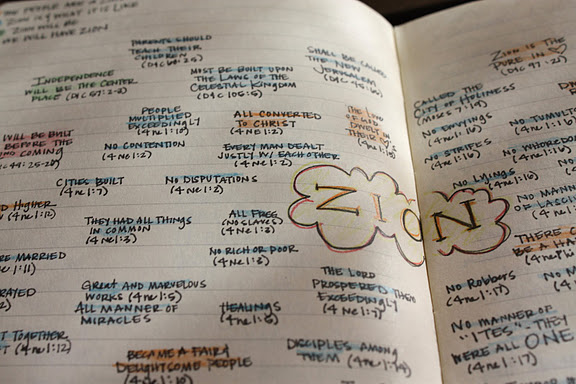 PEOPLE ARE A
ZION IS / WHAT IT IS LIKE
ZION WILL BE
WE WILL HAVE ZION
PARENTS SHOULD
TEACH THEIR
CHILDREN
INDEPENDENCE
WILL BE THE CENTER
PLACE (D&C 57:2-3)
MUST BE BUILT UPON
THE LAWS OF THE
CELESTIAL KINGDOM
(D&C 105:5)
SHALL BE CALLED
THE NEW
JERUSALEM
ZION IS THE
PURE IN
(D&C 97:21)
CALLED THE
CITY OF HOLINESS
(MOSES 7:19)
WILL BE BUILT
BEFORE THE
COMING
PEOPLE
MULTIPLIED
EXCEEDINGLY
(4 NE 1:10)
ALL CONVERTED
TO CHRIST
(4 NE 1:2)
THE LOVE
OF GOD
DWELT IN
THEIR
NO ENVYINGS
(4 NE 1:16)
NO TUMULT
NO STRIFES
(4 NE 1:16)
NO WHOREDO
NO CONTENTION
(4 NE 1:2)
EVERY MAN DEALT
JUSTLY W/ EACH OTHER
(4 NE 1:2)
CITIES BUILT
(4 NE 1:7)
NO DISPUTATIONS
(4 NE 1:2)
ZION
NO LYINGS
NO MANN
OF LASCIV
HIGHER
THEY HAD ALL THINGS
IN COMMON
(4 NE 1:3)
ALL FREE
(NO SLAVES)
(4 NE 1:3)
NO RICH OR POOR
(4 NE 1:3)
THERE C
BE A HA
RE MARRIED
GREAT AND MARVELOUS
WORKS (4 NE 1:5)
ALL MANNER OF
MIRACLES
HEALINGS
(4 NE 1:5)
THE LORD
PROSPERED THEM
EXCEEDINGLY
(4 NE 1:7)
NO ROBBERS
(4 NE 1:17)
RAYED
T TOGETHER
(4 NE 1:12)
BECAME A FAIR
DELIGHTSOME PEOPLE
(4 NE 1:10)
DISCIPLES AMONG
THEM (4 NE 1:14)
NO MANNER OF
"ITES" - THEY
WERE ALL ONE
(4 NE 1:17)